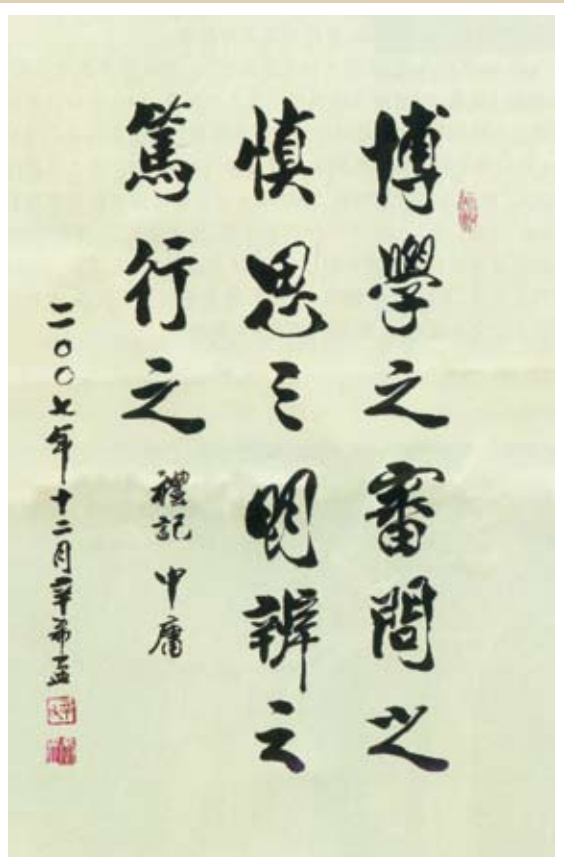 博學之審問之
慎思之明辨之
篤行之
禮記 中庸
二〇〇七年十二月辛希孟